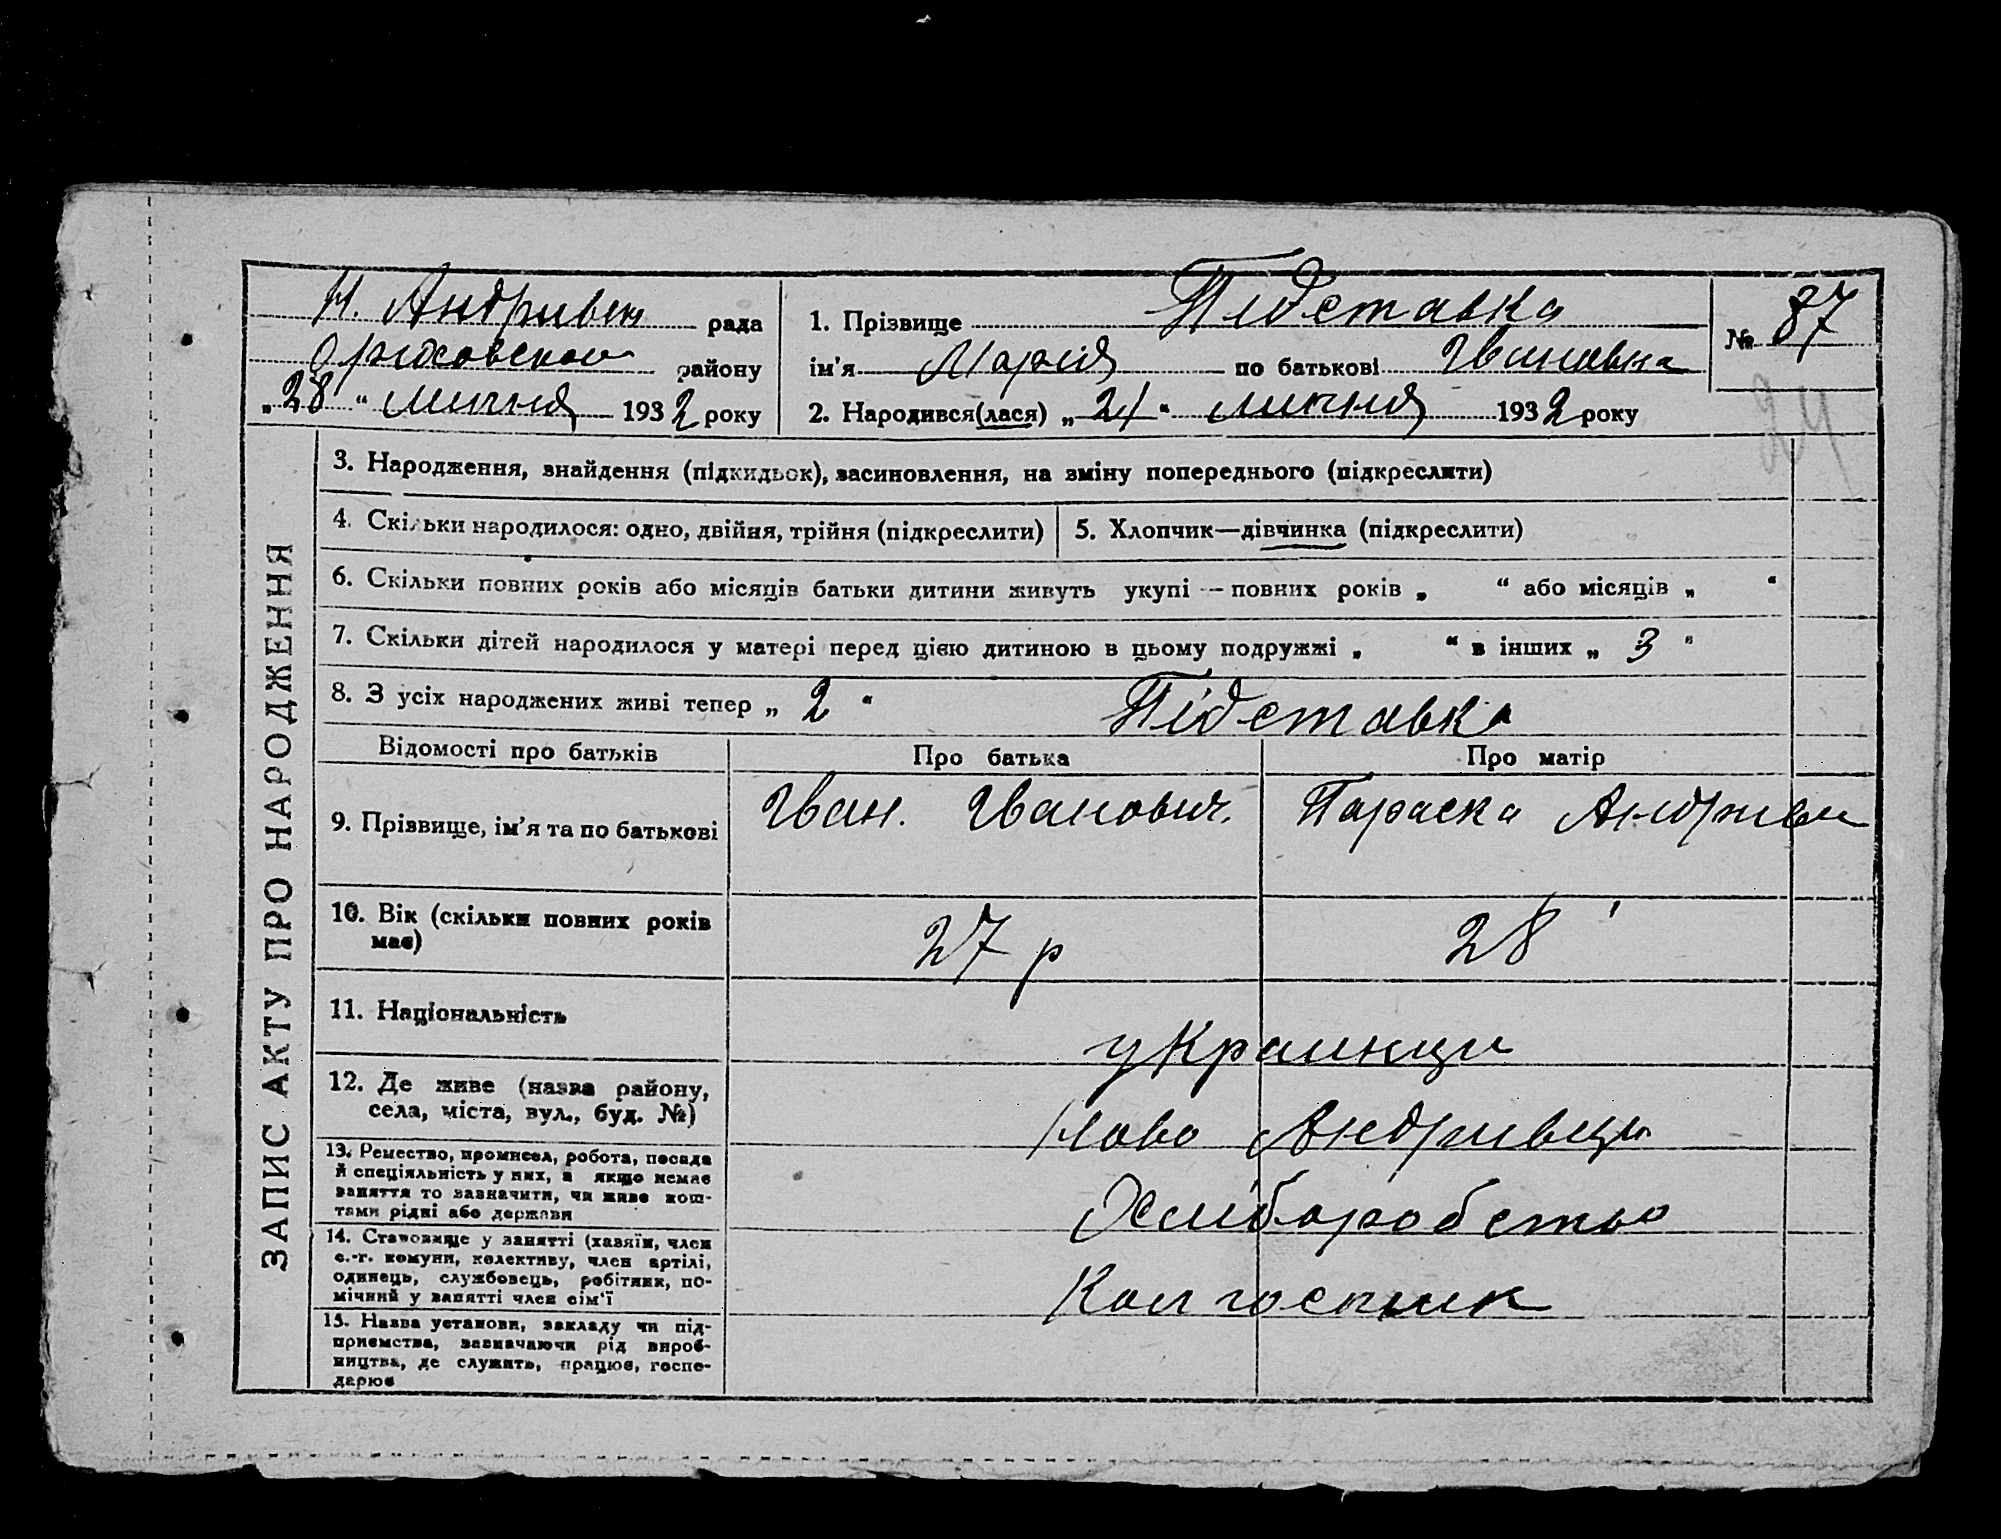 Н. Андривск рада
Оріховского району
„28“ липня 1932 року
1. Прізвище Підставка
ім'я Мария по батькові Івановна
2. Народився(лася) „21“ липня 1932 року
№ 87
24
ЗАПИС АКТУ ПРО НАРОДЖЕННЯ
3. Народження, знайдення (підкидьок), засиновлення, на зміну попереднього (підкреслити)
4. Скільки народилося: одно, двійня, трійня (підкреслити)
5. Хлопчик—дівчинка (підкреслити)
6. Скільки повних років або місяців батьки дитини живуть укупі — повних років „ “ або місяців „ “
7. Скільки дітей народилося у матері перед цією дитиною в цьому подружжі „ “ в інших „ 3 “
8. З усіх народжених живі тепер „ 2 “ Підставка
Відомості про батьків
Про батька
Про матір
9. Прізвище, ім'я та по батькові
Іван. Іванович.
Параска
10. Вік (скільки повних років
має)
27 р
28
11. Національність
украинци
12. Де живе (назва району,
села, міста, вул., буд. №)
Ново Андривци
13. Ремество, промисел, робота, посада
й спеціяльність у них, а якщо немає
заняття то зазначити, чи живе кош-
тами рідні або держави
Хліборобство
14. Становище у занятті (хазяїн, член
с.-г. комуни, колективу, член артілі,
одинець, службовець, робітник, по-
мічний у занятті член сім'ї
Колгоспник
15. Назва установи, закладу чи під-
приємства, зазначаючи рід вироб-
ництва, де служить, працює, госпо-
дарює